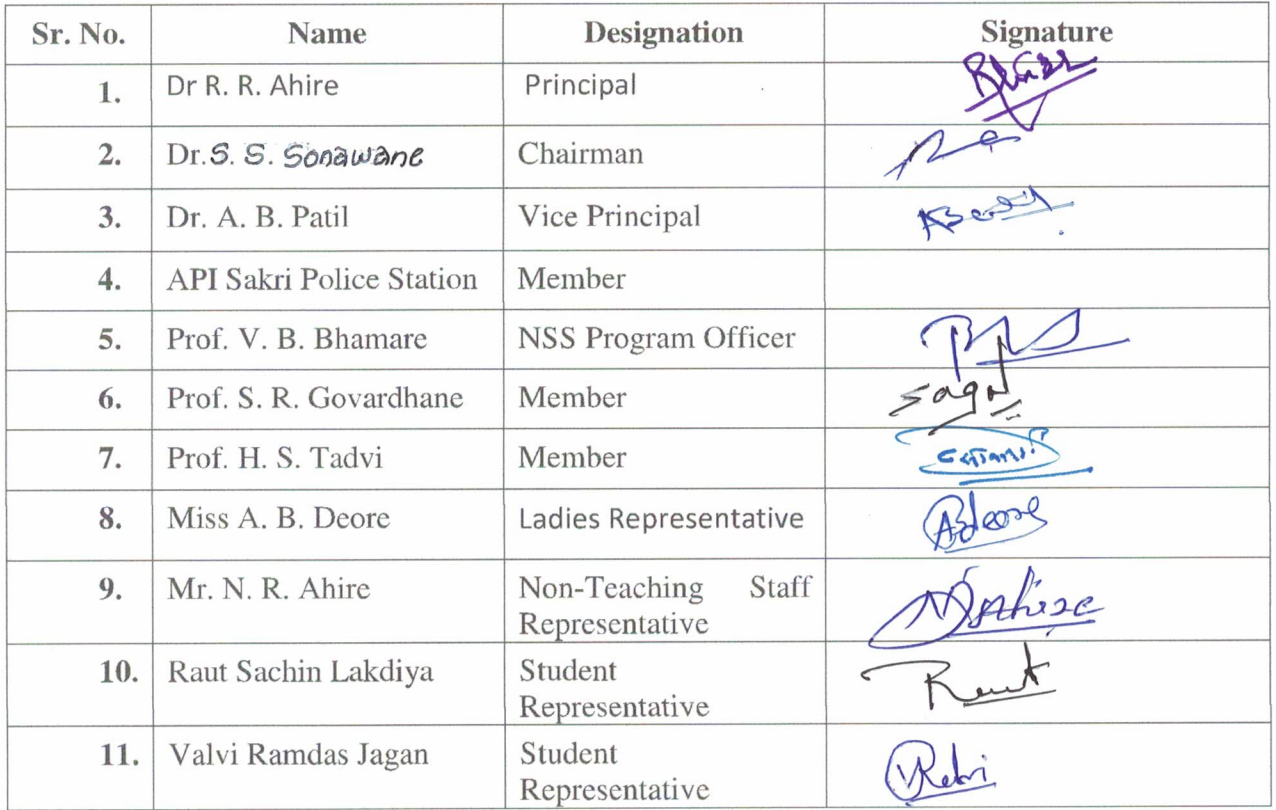 Sr. No. Name Designation Signature
1. Dr R. R. Ahire Principal
2. Dr. S. S. Sonawane Chairman
3. Dr. A. B. Patil Vice Principal
4. API Sakri Police Station Member
5. Prof. V. B. Bhamare NSS Program Officer
6. Prof. S. R. Govardhane Member
7. Prof. H. S. Tadvi Member
8. Miss A. B. Deore Ladies Representative ABdeore
9. Mr. N. R. Ahire Non-Teaching Staff
Representative
10. Raut Sachin Lakdiya Student Raut
Representative
11. Valvi Ramdas Jagan Student
Representative